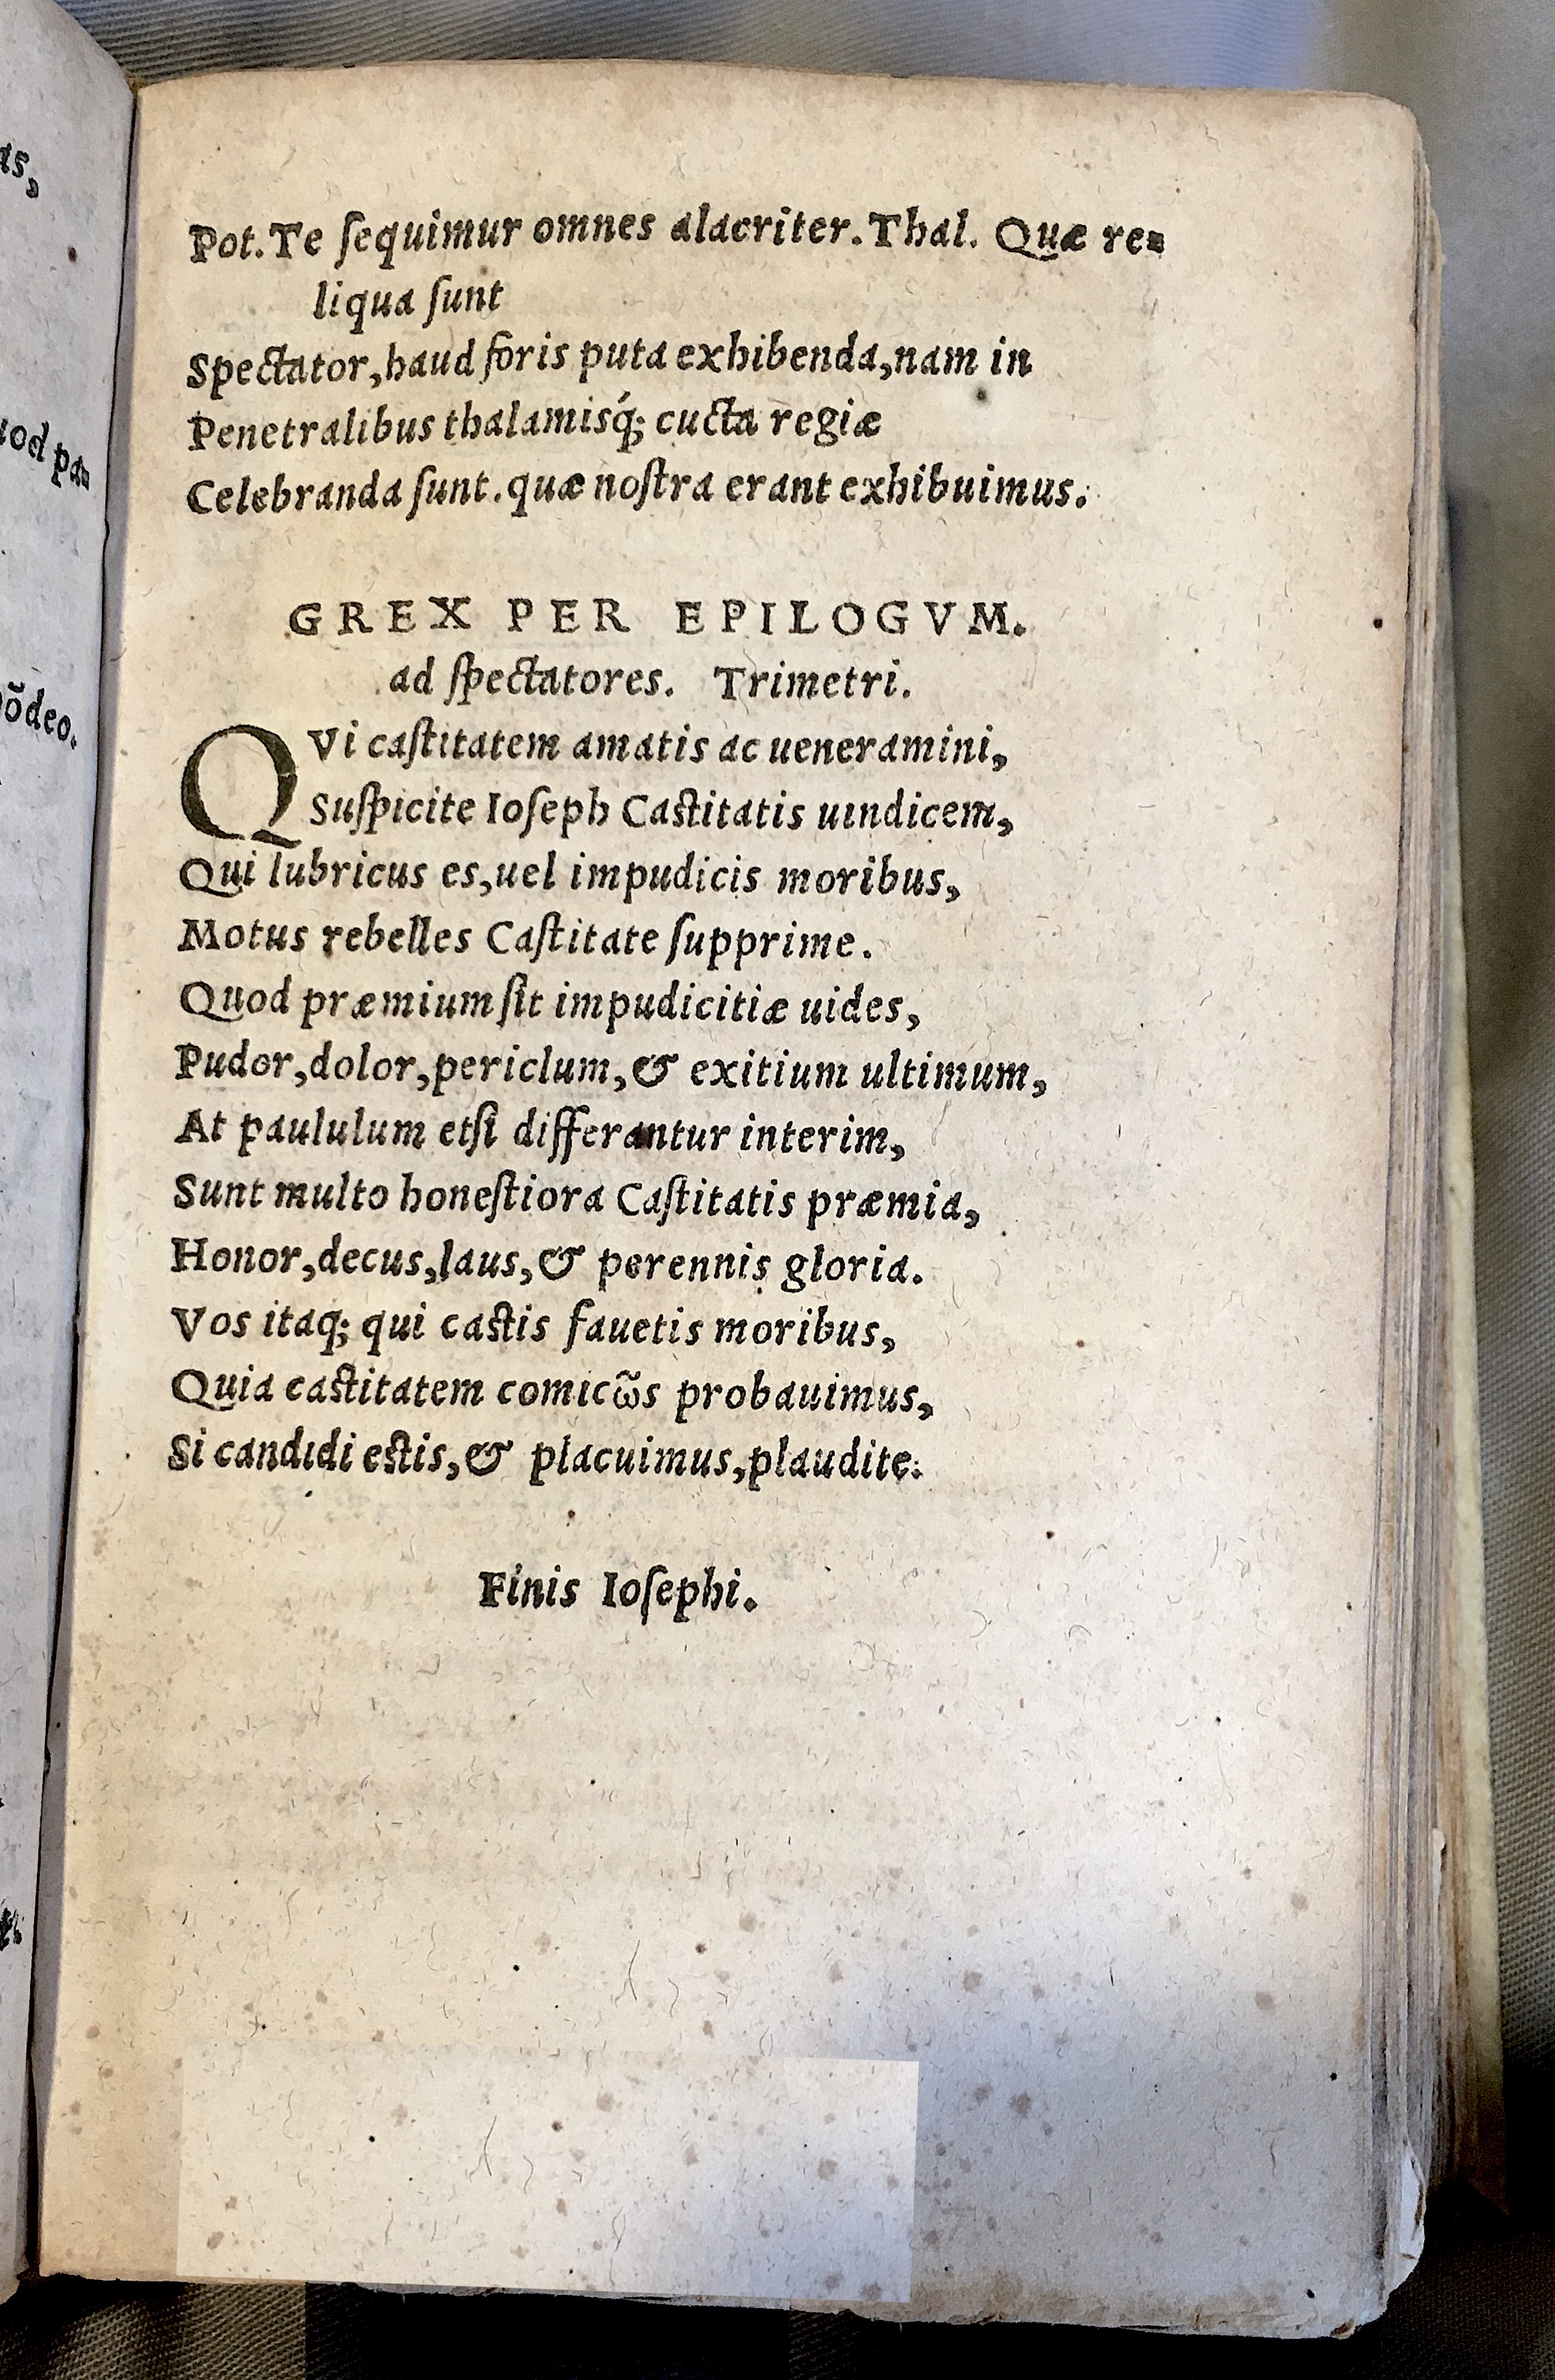 as,
uod pa
õdeo.
Pot. Te ſequimur omnes alacriter. Thal. Quæ re-
liqua ſunt
Spectator, haud foris puta exhibenda, nam in
Penetralibus thalamisq́; cucta regiæ
Celebranda ſunt. quæ noſtra erant exhibuimus.
GREX PER EPILOGVM.
ad ſpectatores. Trimetri.
QVi caſtitatem amatis ac ueneramini,
Suſpicite Ioſeph Caſtitatis uindicem,
Qui lubricus es, uel impudicis moribus,
Motus rebelles Caſtitate ſupprime.
Quod præmium ſit impudicitiæ uides,
Pudor, dolor, periclum, & exitium ultimum,
At paululum etſi differantur interim,
Sunt multo honeſtiora Caſtitatis præmia,
Honor, decus, laus, & perennis gloria.
Vos itaq; qui caſtis fauetis moribus,
Quia caſtitatem comicω̃s probauimus,
Si candidi eſtis, & placuimus, plaudite.
Finis Ioſephi.